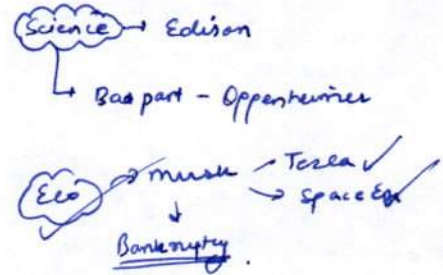 Science → Edison
Bad part - Oppenheimer
Eco → Musk → Tesla ✓
→ SpaceX ✓
↓
Bankruptcy.